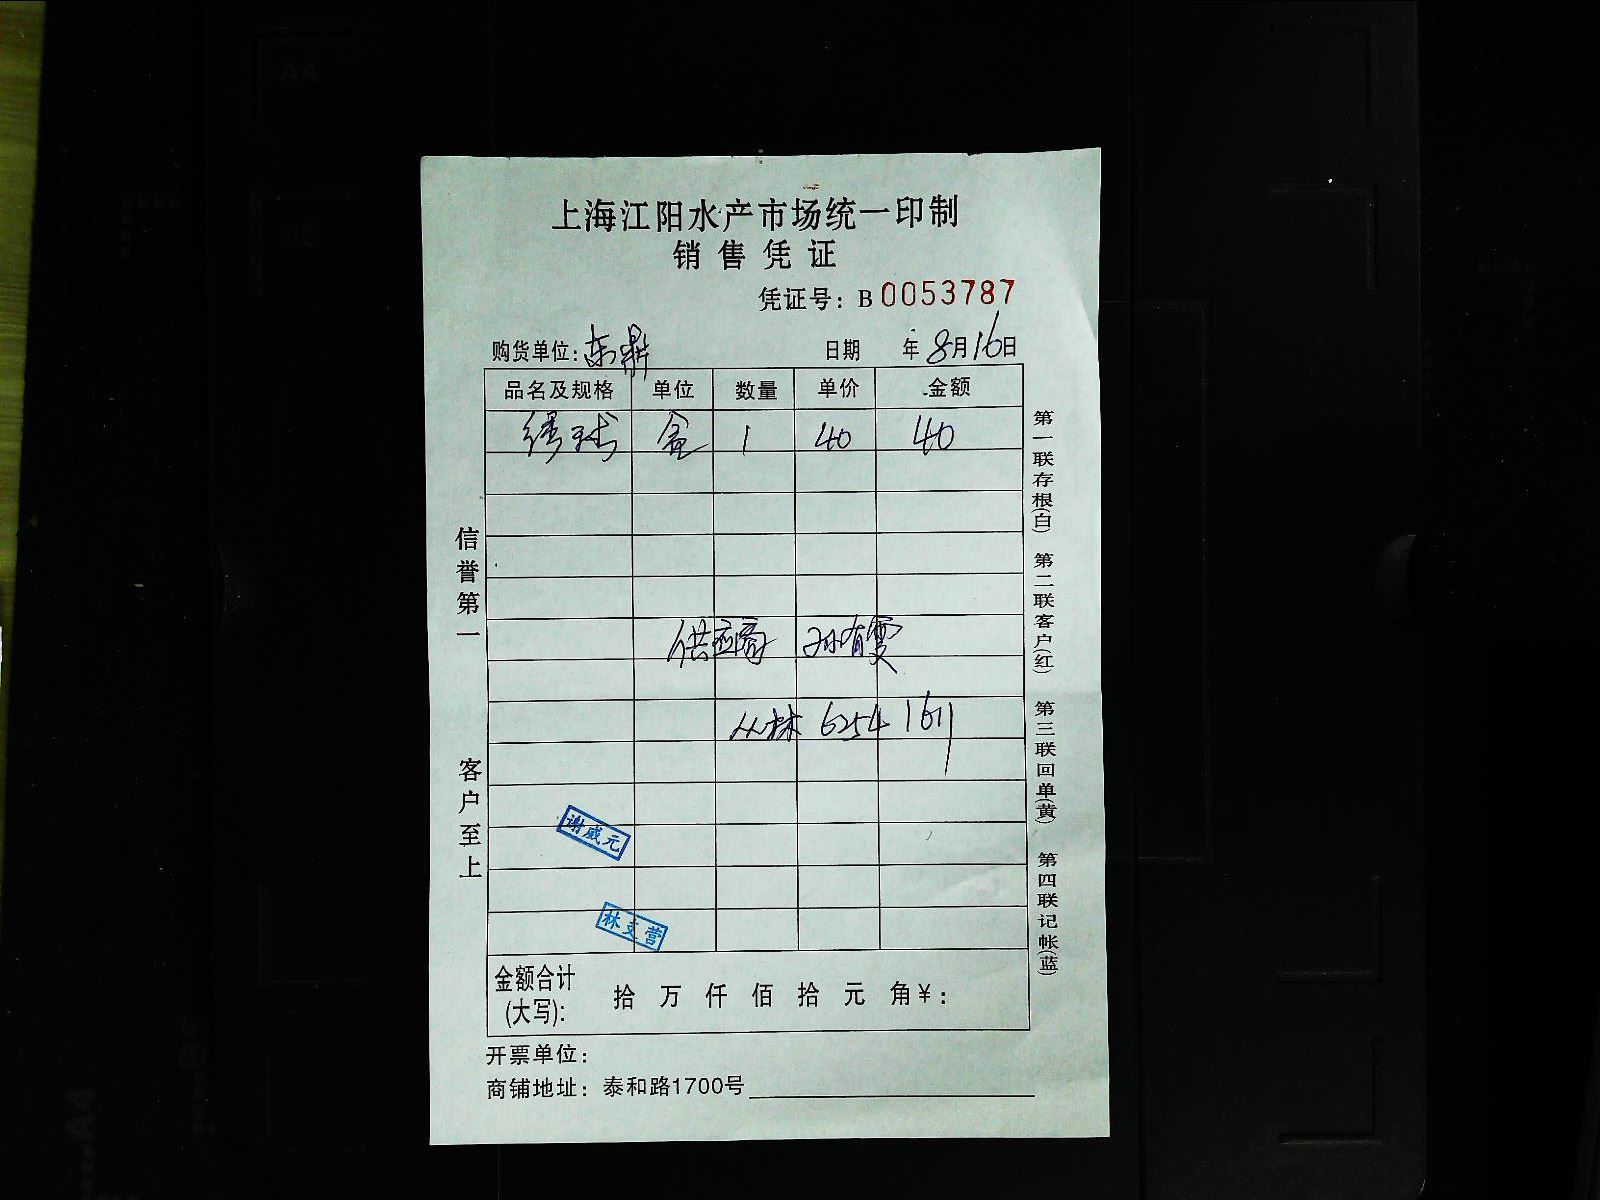 上海江阳水产市场统一印制
销售凭证
凭证号：B 0053787
购货单位：东鼎 日期 年 8月16日
品名及规格 单位 数量 单价 金额
盒 1 40 40
供应商 孙有雯
丛林 6254 1611
谢威元
林支营
金额合计(大写)： 拾 万 仟 佰 拾 元 角 ¥：
开票单位：
商铺地址：泰和路1700号
信誉第一 客户至上
第一联存根(白) 第二联客户(红) 第三联回单(黄) 第四联记帐(蓝)
A4